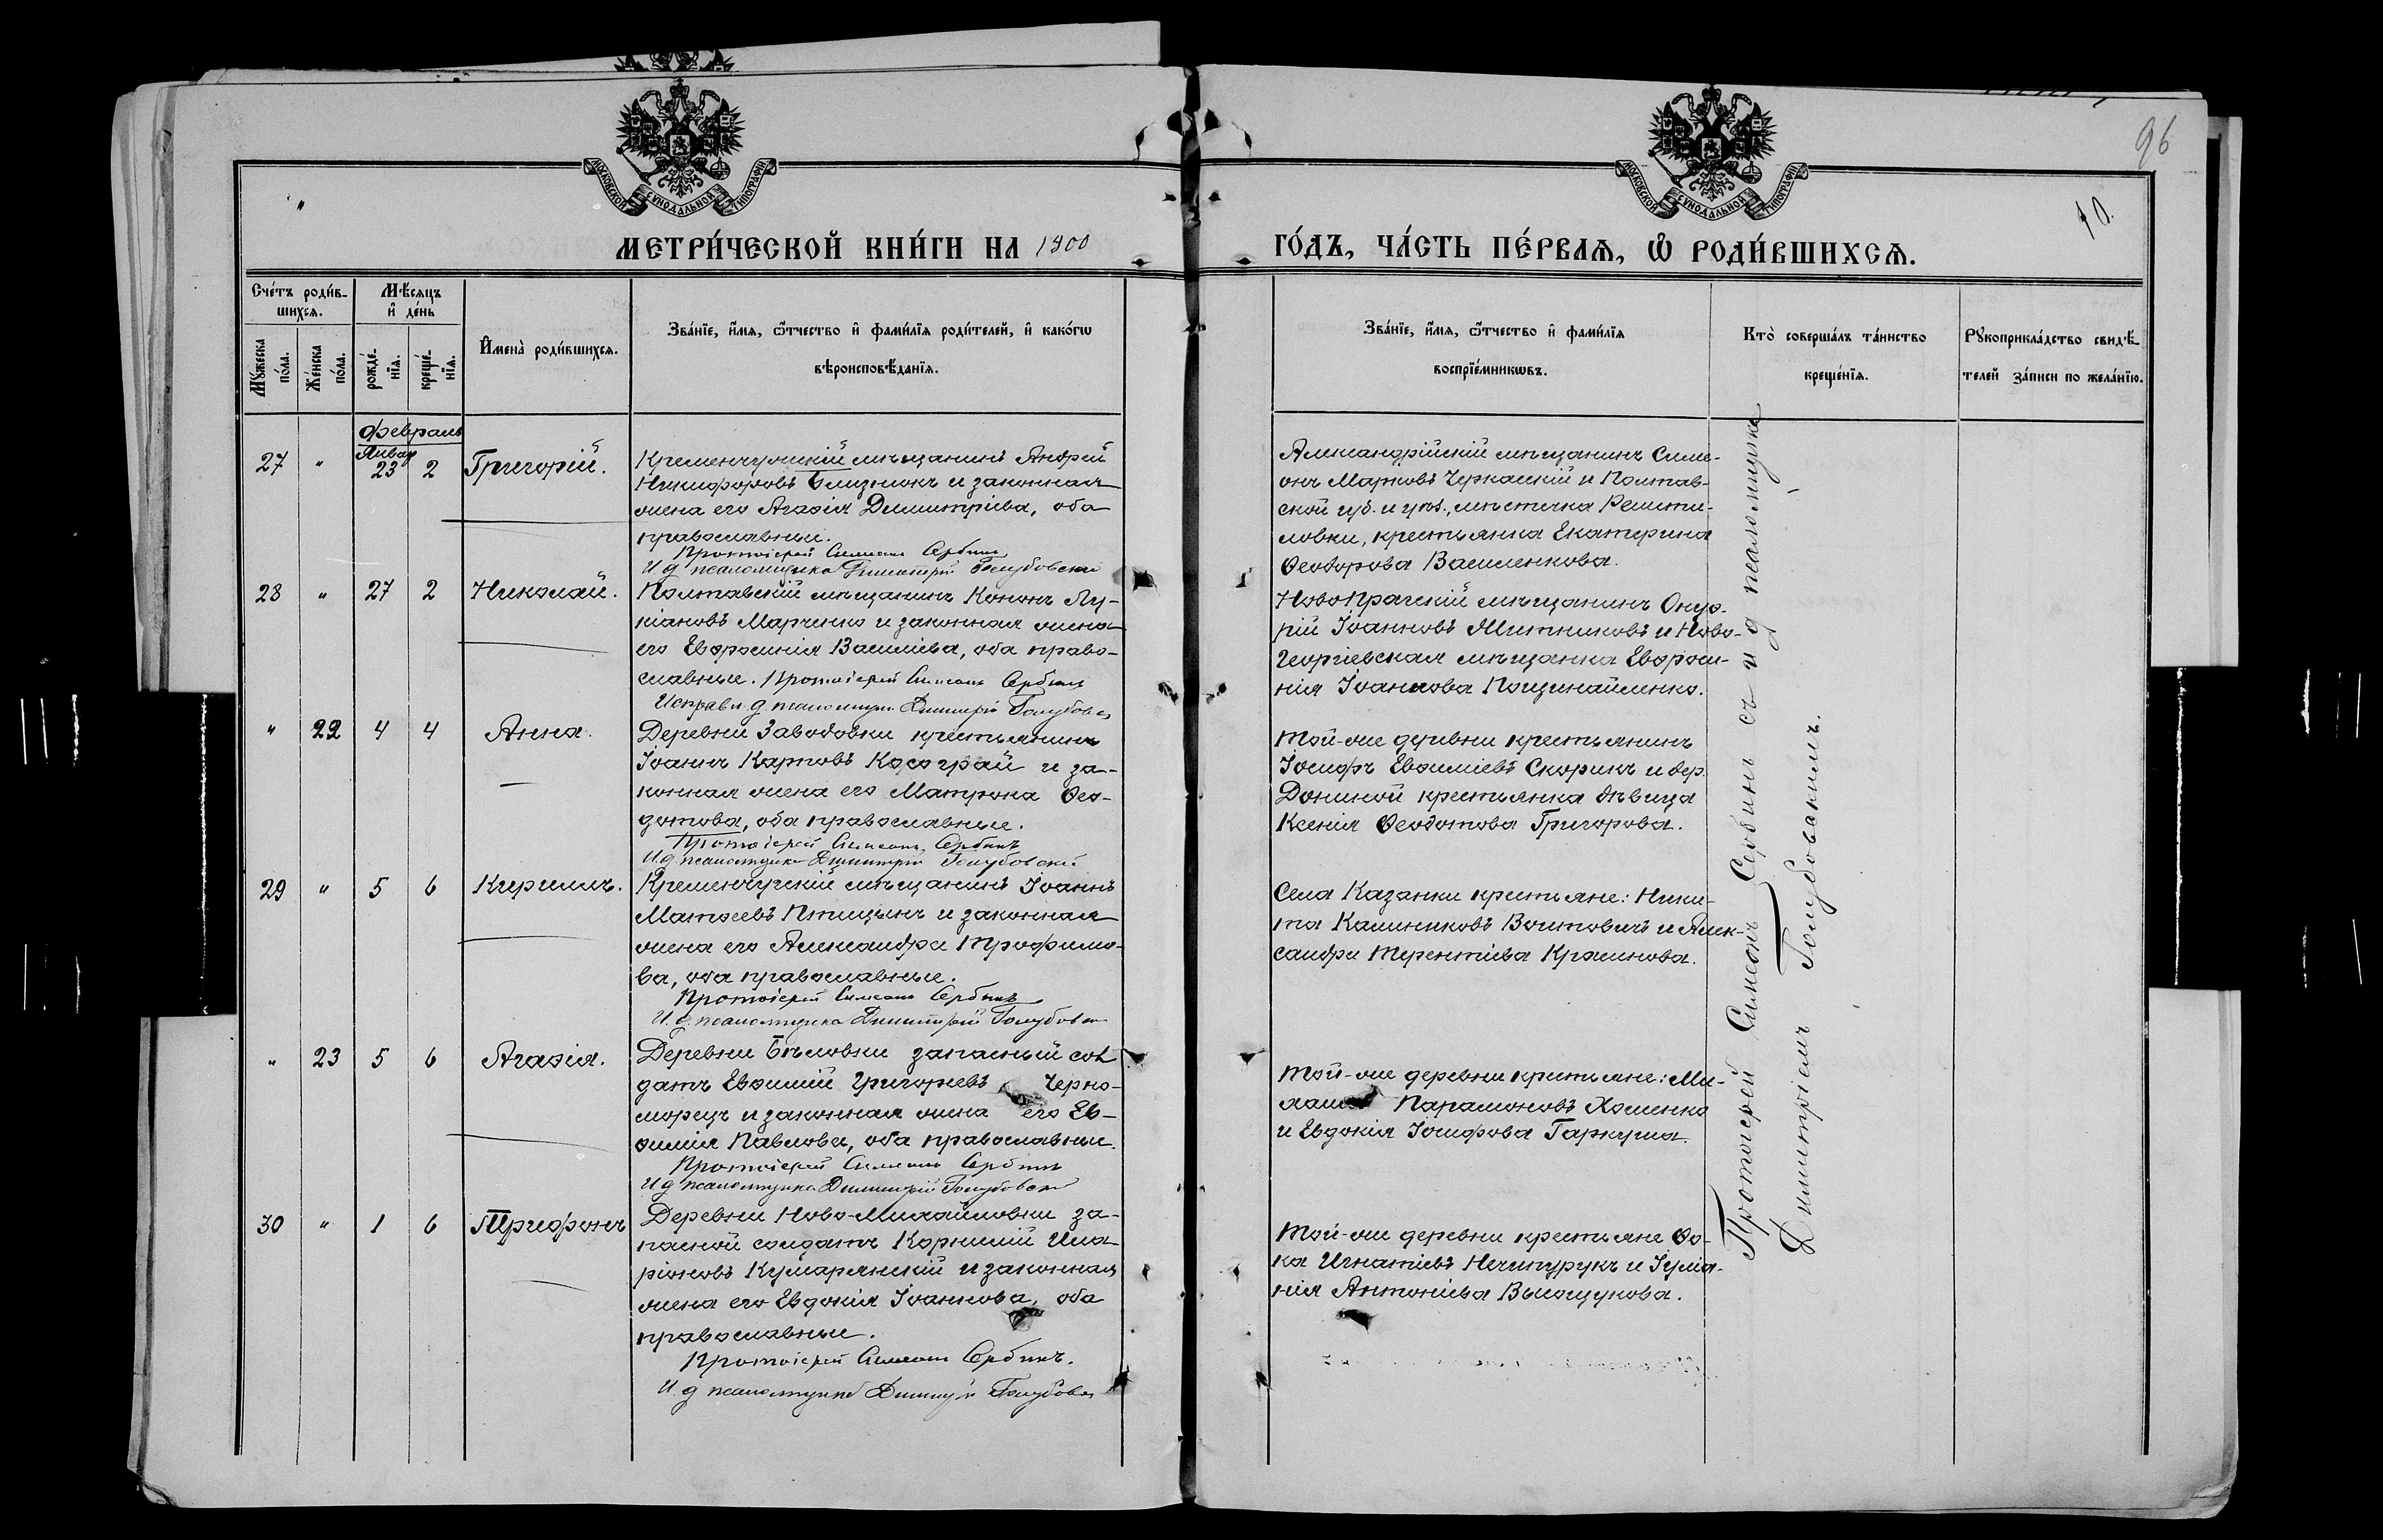 96
10.
МОСКОВСКОЙ СѴНОДАЛЬНОЙ ТИПОГРАФІИ
МОСКОВСКОЙ СѴНОДАЛЬНОЙ ТИПОГРАФІИ
"
МЕТРИ́ЧЕСКОЙ КНИ́ГИ НА 1900
ГО́ДЪ, ЧА́СТЬ ПЕ́РВАѦ, Ѽ РОДИ́ВШИХСѦ.
Сче́тъ роди́в-
шихсѧ.
Мꙋ́жеска
по́ла.
Же́нска
по́ла.
Мѣ́сѧцъ
и҆ де́нь
рожде́-
нїѧ.
креще́-
нїѧ.
И҆мена̀ роди́вшихсѧ.
Зва́нїе, и҆́мѧ, ѻ҆́тчество и҆ фами́лїѧ роди́телей, и҆ како́гѡ
вѣроисповѣ́данїѧ.
Зва́нїе, и҆́мѧ, ѻ҆́тчество и҆ фами́лїѧ
воспрїе́мникѡвъ.
Кто̀ соверша́лъ та́инство
креще́нїѧ.
Рꙋкоприкла́дство свидѣ́-
телей за́писи по жела́нїю.
Февраль
Январ
27 " 23 2 Григорій.
Кременчугскій мѣщанинъ Андрей
Никифоровъ Близнюкъ и законная
жена его Агаѳія Димитріева, оба
православные.
Протоіерей Симеонъ Сербинъ
И д псаломщика Димитрій Голубовскій
Александрійскій мѣщанинъ Симе-
онъ Марковъ Черкаскій и Полтав-
ской губ. и уѣз., мѣстечка Решети-
ловки, крестьянка Екатерина
Ѳеодорова Василенкова.
28 " 27 2 Николай.
Полтавскій мѣщанинъ Кононъ Лу-
кіановъ Марченко и законная жена
его Евфросинія Василіева, оба право-
славные. Протоіерей Симеонъ Сербинъ
Исправл. д. псаломщ Димитрій Голубовс
НовоПрагскій мѣщанинъ Онуф-
рій Іоанновъ Митниковъ и Ново-
Георгіевская мѣщанка Евфроси-
нія Іоаннова
" 22 4 4 Анна.
Деревни Заводовки крестьянинъ
Іоаннъ Карповъ Косограй и за-
конная жена его Матрона Ѳео-
дотова, оба православные.
Протоіерей Симеонъ Сербинъ
И д псаломщика Димитрій Голубовскій
Той-же деревни крестьянинъ
Іосифъ Евѳиміевъ Скорикъ и дер.
Дониной крестьянка дѣвица
Ксенія Ѳеодотова Григорова.
29 " 5 6 Кириллъ.
Кременчугскій мѣщанинъ Іоаннъ
Матѳеевъ Птицынъ и законная
жена его Александра Трофимо-
ва, оба православные.
Протоіерей Симеонъ Сербинъ
И. д. псаломщика Димитрій Голубовс
Села Казанки крестьяне: Ники-
та Калиниковъ Воитовичъ и Алек-
сандра Терентіева
" 23 5 6 Агаѳія.
Деревни Бѣловки запасный сол
датъ Евѳимій Григорьевъ Черно-
морецъ и законная жена его Ев-
ѳимія Павлова, оба православные.
Протоіерей Симеонъ Сербинъ
И д псаломщика Димитрій Голубовскій
Той-же деревни крестьяне: Ми-
хаилъ Парамоновъ Хоменко
и Евдокія Іосифова Гаркуша.
30 " 1 6 Трифонъ
Деревни Ново-Михайловки за-
пасной солдатъ Корнилій Ила-
ріоновъ Кумарянскій и законная
жена его Евдокія Іоаннова, оба
православные.
Протоіерей Симеонъ Сербинъ.
И. д псаломщика Димитрій Голубовс
Той-же деревни крестьяне Ѳо-
ка Игнатіевъ Нечипурукъ и Іулiа-
нія Антоніева
Протоіерей Симеонъ Сербинъ съ и д псаломщика
Димитріемъ Голубовскимъ.